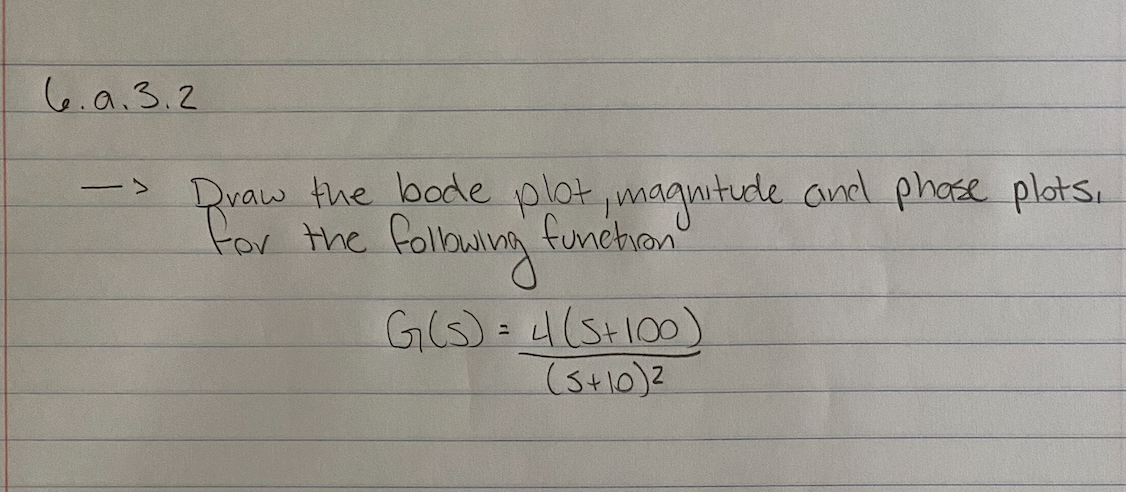 6.a.3.2
—> Draw the bode plot, magnitude and phase plots,
for the following function
G(s) = 4(s+100)
(s+10)²